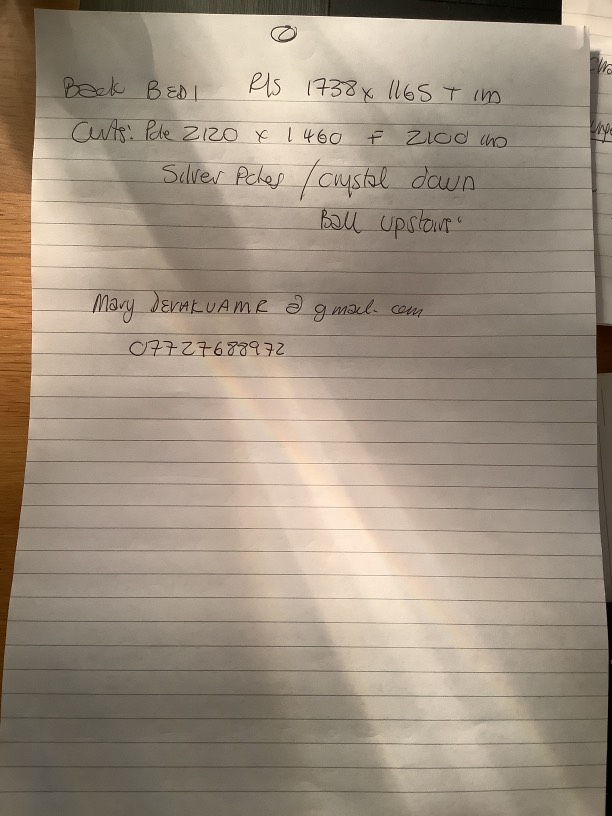 2
Back BED1 R/S 1738 x 1165 + IM
Curts: Pole 2120 x 1460 F 2100
Silver Poles / crystal down
Ball upstairs
Mary @ gmail.com
07727688972